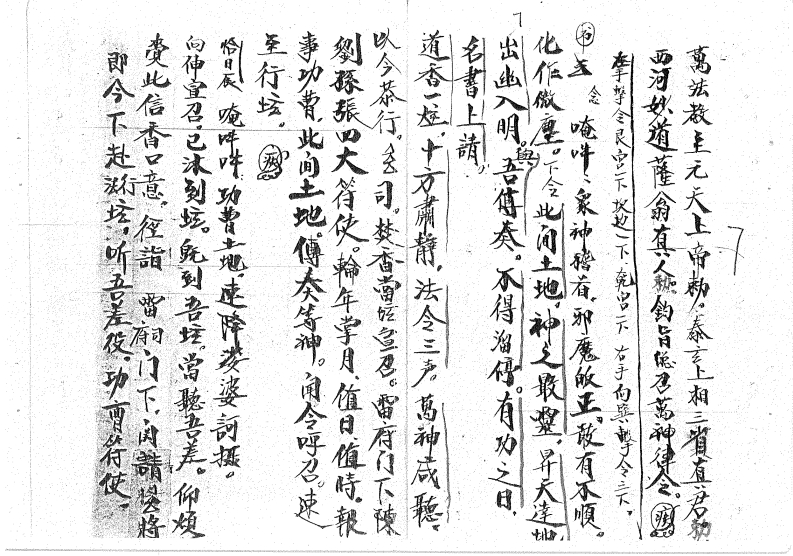 萬法教主元天上帝勅。泰玄上相三省真君勅
西河妙道薩翁真人勅鈞旨低召萬神律令。
擊令艮宮一下 一下 兌宮一下 右手向巽擊令三下。
念 唵吽吽 衆神稽首。邪魔皈正。敢有不順。
化作微塵。下令此間土地。神之最靈。昇天達地
出幽入明。與吾傳奏。不得溜停。有功之日。
名書上請。
道香一炷。十方肅靜。法令三声。萬神咸聽。
以今恭行。玄司。焚香當坛宣召。雷府門下陳
劉孫張四大符使。輪年掌月。值日值時。報
事功曹。此間土地。傳奏等神。聞令呼召。速
至行坛。
唵吽吽。功曹土地。速降娑婆訶攝。
向伸宣召。已沐到坛。既到吾坛。當聽吾差。仰煩
賫此信香口意。徑詣 雷府門下。関請 將
即今下赴法行坛。听吾差役。功曹符使。